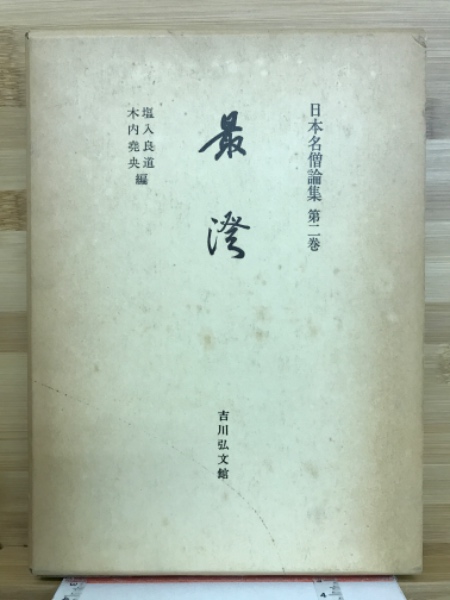 日本名僧論集 第二巻
最澄
塩入良道
木内堯央 編
吉川弘文館